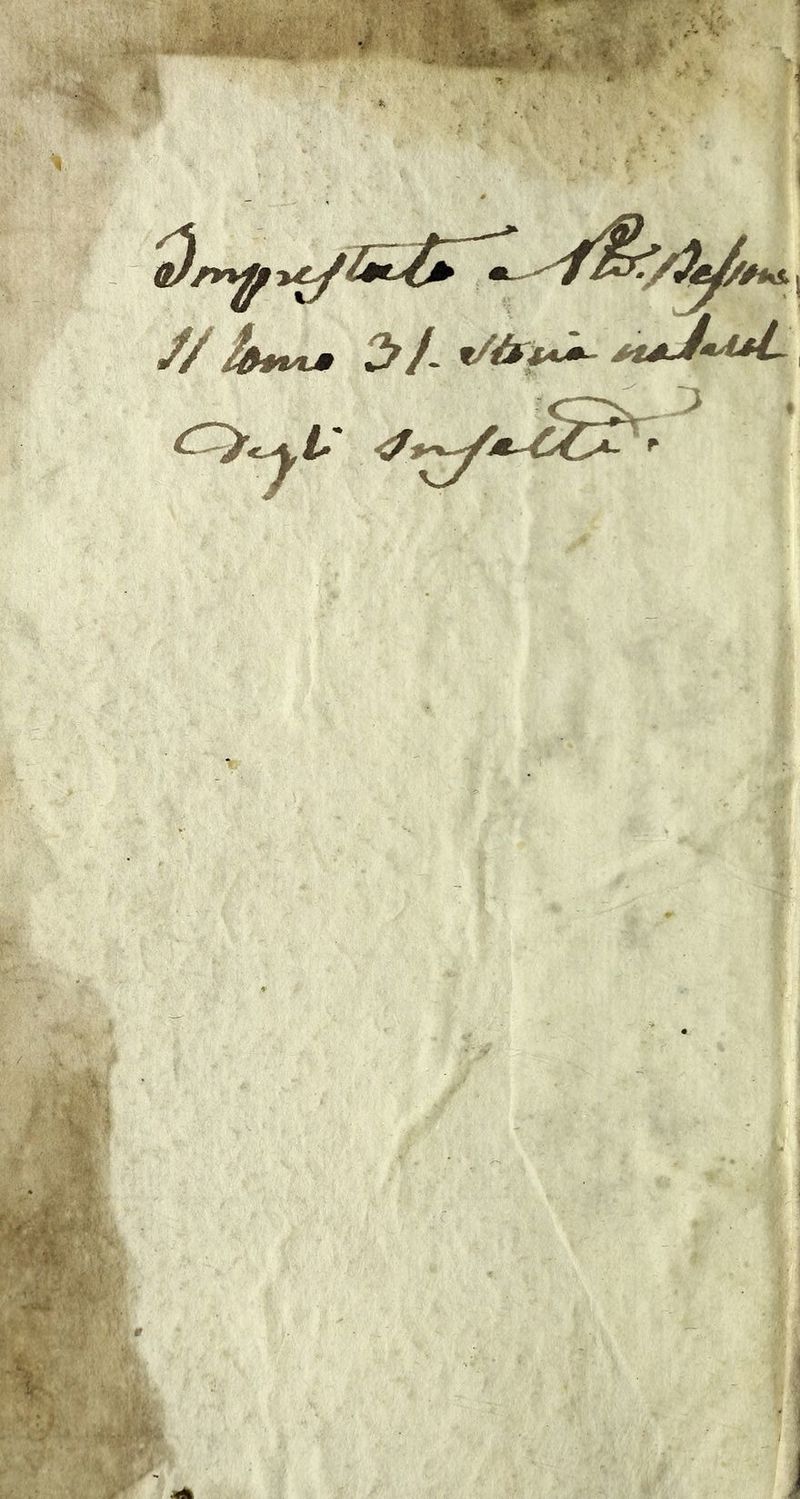 Imprestato a
Il tomo 31. Storia natural
Degli Insetti.